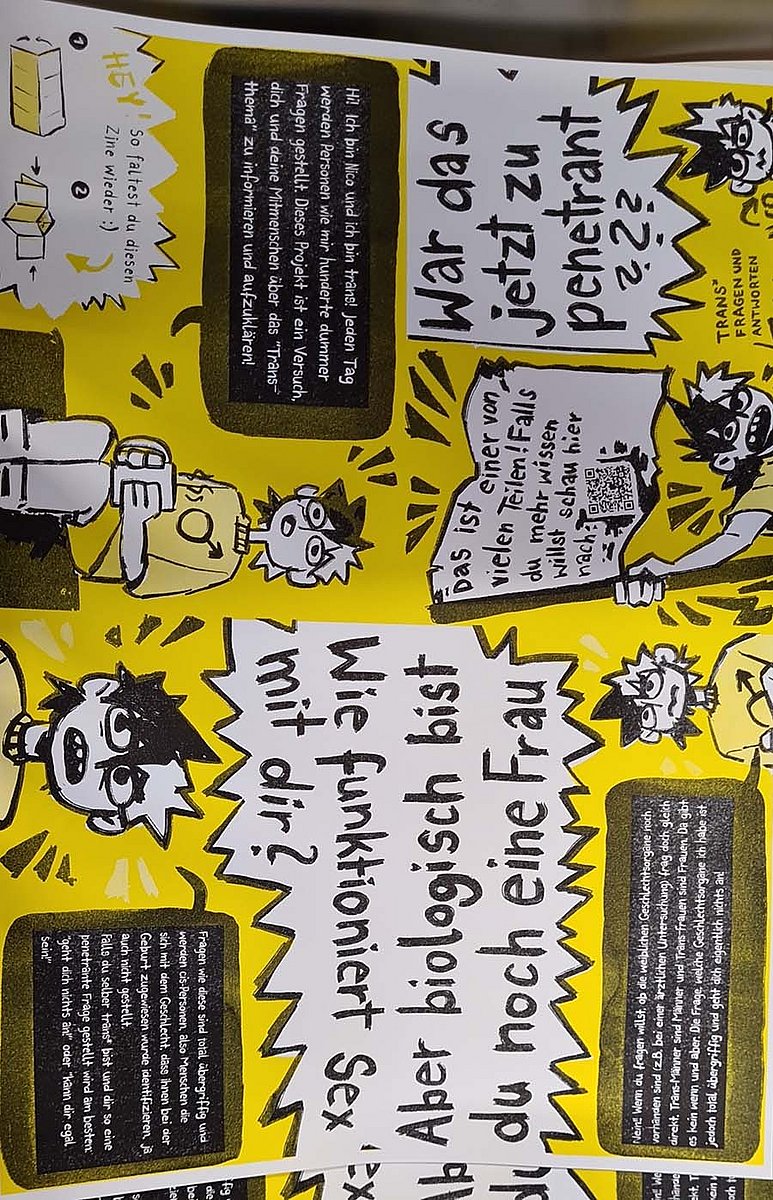 War das
jetzt zu
penetrant
???
TRANS*
FRAGEN UND
ANTWORTEN
Hi! Ich bin Nico und ich bin trans! Jeden Tag
werden Personen wie mir hunderte dummer
Fragen gestellt. Dieses Projekt ist ein Versuch,
dich und deine Mitmenschen über das "Trans-
thema" zu informieren und aufzuklären!
HEY! So faltest du diesen
Zine wieder :)
1
2
Das ist einer von
vielen Teilen! Falls
du mehr wissen
willst schau hier
nach:
Aber biologisch bist
du noch eine Frau
Nein! Wenn du fragen willst, ob die weiblichen Geschlechtsorgane noch
vorhanden sind (z.B. bei einer ärztlichen Untersuchung) frag doch gleich
direkt. Trans-Männer sind Männer und Trans-Frauen sind Frauen. Da gibt
es kein wenn und aber. Die Frage, welche Geschlechtsorgane ich habe ist
jedoch total übergriffig und geht dich eigentlich nichts an!
Wie funktioniert Sex
mit dir?
Fragen wie diese sind total übergriffig und
werden cis-Personen, also Menschen die
sich mit dem Geschlecht, dass ihnen bei der
Geburt zugewiesen wurde identifizieren, ja
auch nicht gestellt.
Falls du selber trans* bist und dir so eine
penetrante Frage gestellt wird am besten:
"geht dich nichts an!" oder "kann dir egal
sein!"